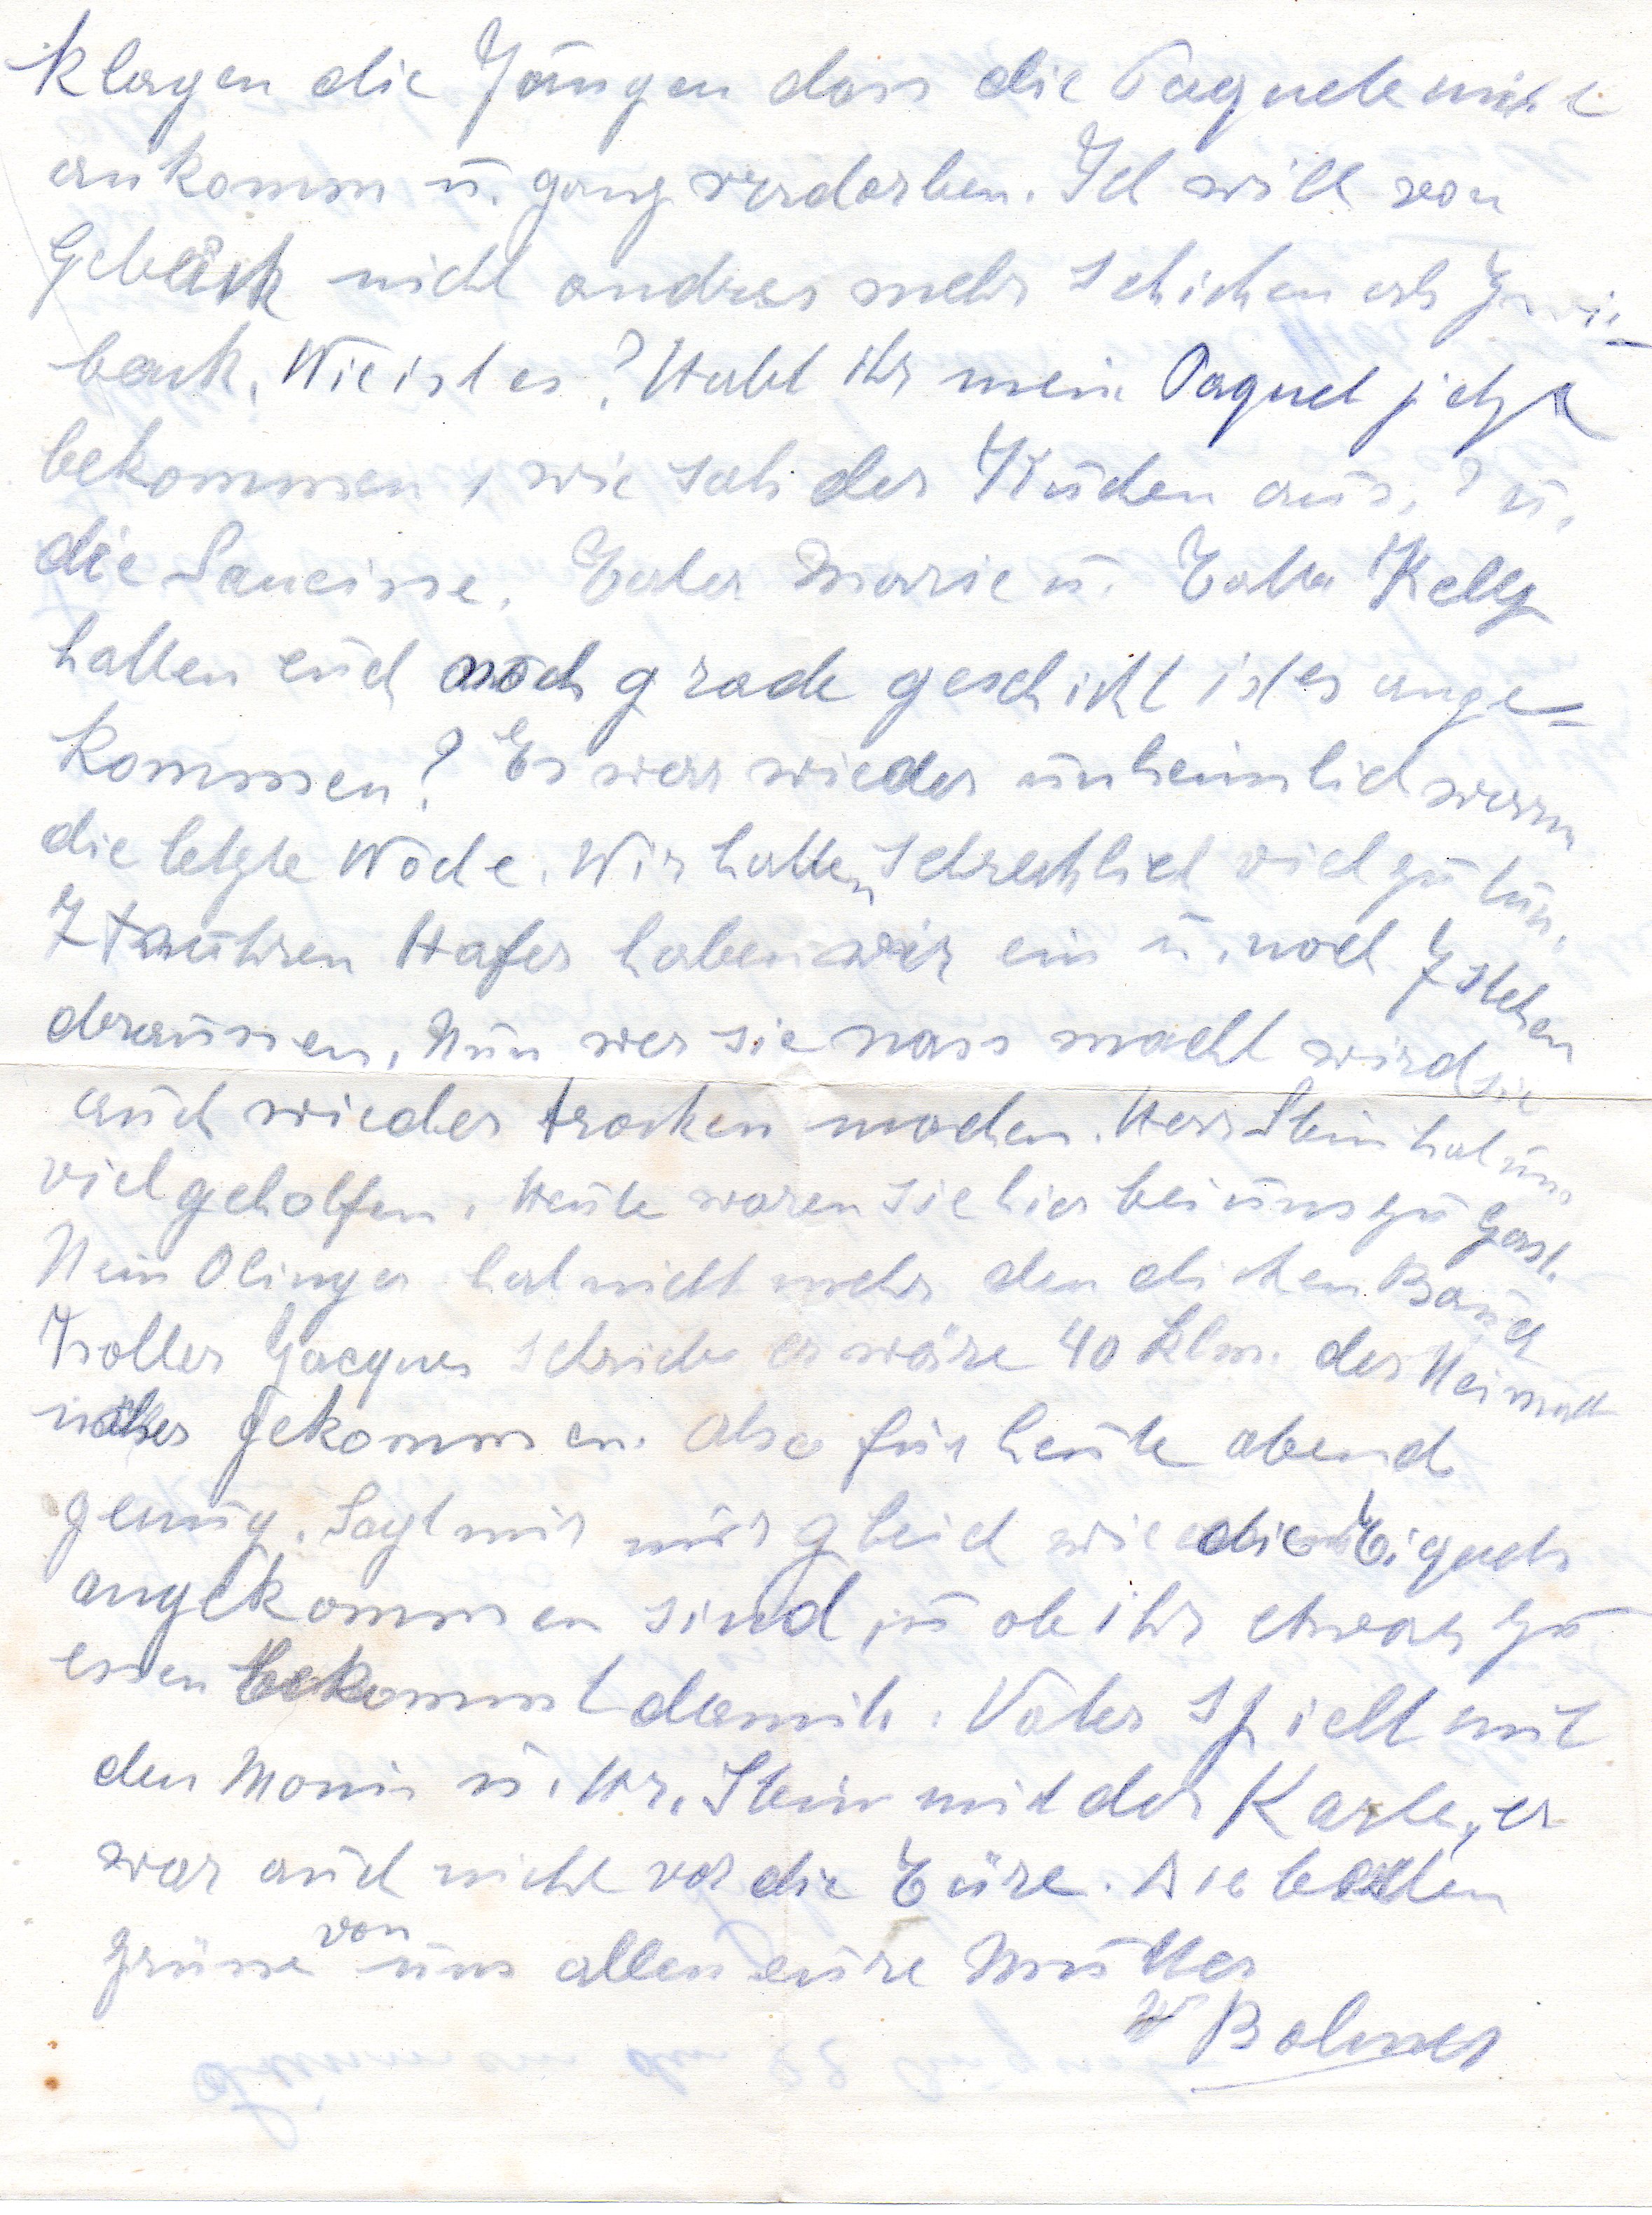 klagen die Jüngen dass die Paquete nicht
ankomm ü. ganz verdorben. Ich will von
Gebäck nicht andres mehr schicken als Zwie-
back. Wie ist es? Habt ihr mein Paquet jetzt
bekommen, wie sah der Küchen aus,? ü.
die Saucisse. Tata Marie ü. Tata Ketty
hatten eüch noch grade geschikt ist es ange=
kommen? Es war wieder ünheimlich warm
die letzte Woche. Wir hatten schrecklich viel zü tün.
7 Führen Hafer haben wir ein ü. noch 7 stehen
draüssen. Nün wer sie nass macht wird sie
aüch wieder trocken machen. Herr Stein hat üns
viel geholfen. Heüte waren sie hier bei üns zü Gast.
Nein Olinger hat nicht mehr den dicken Baüch
Jacques schrieb er wäre 40 klm. der Heimatt
näher gekommen. Also für heüte abend
genüg. Sagt mir nür gleich wie die
angekommen sind, ü ob ihr etwas zü
essen bekommt damit. Vater spielt mit
den Monni ü. Hr. Stein mit der Karte, er
war aüch nicht vor die Türe. Die besten
Grüsse von üns allen eüre Mütter
Bohner